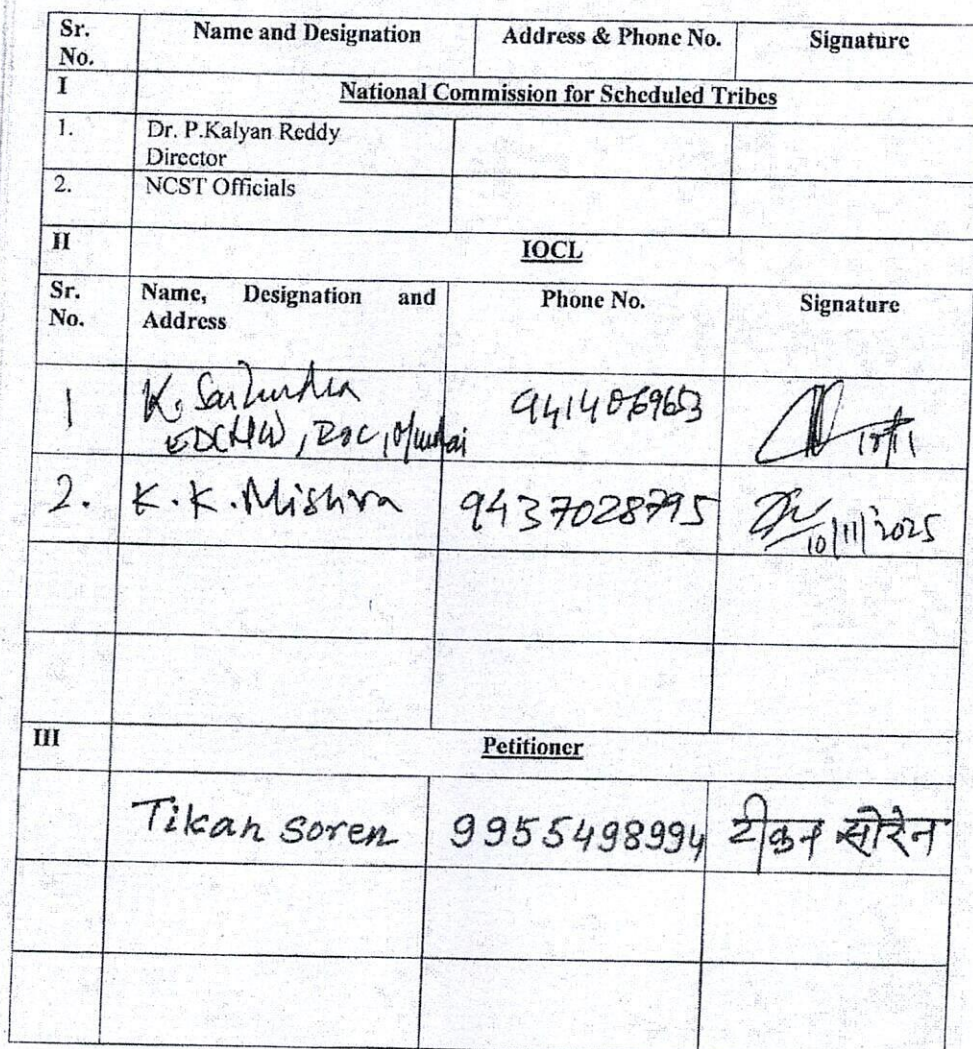 Sr. No. Name and Designation Address & Phone No. Signature
I National Commission for Scheduled Tribes
1. Dr. P.Kalyan Reddy
Director
2. NCST Officials
II IOCL
Sr. No. Name, Designation and Address Phone No. Signature
1 K.
9414069653
2. K.K.Mishra 9437028795 10/11/2025
III Petitioner
Tikan Soren 9955498994 टीकन सोरेन